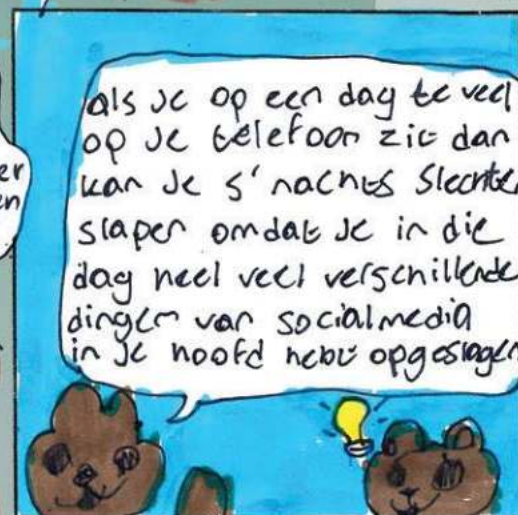 als je op een dag te veel
op je telefoon zit dan
kan je s'nachts slechter
slapen omdat je in die
dag heel veel verschillende
dingen van socialmedia
in je hoofd hebt opgeslagen